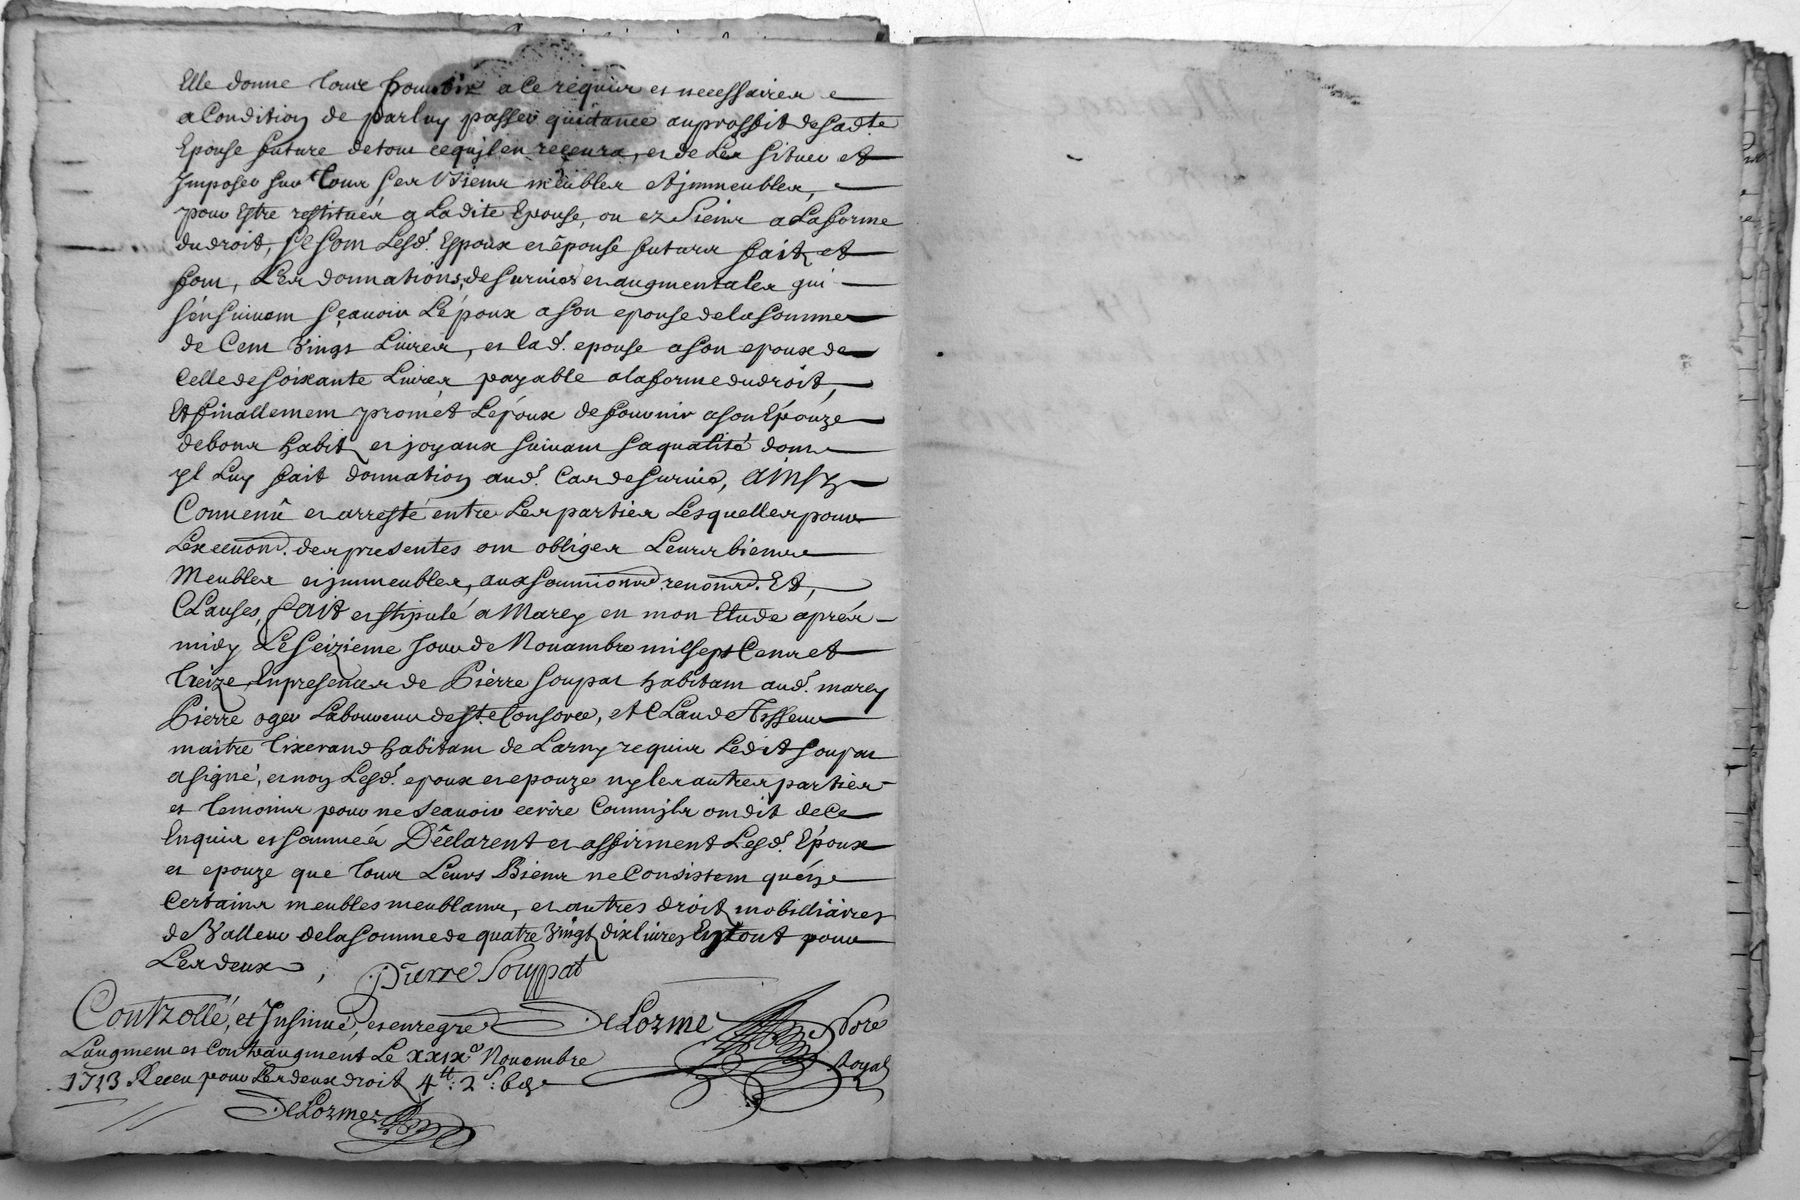 Elle donne tout pouvoir a ce requis et necessaires
a Condition de par luy passer quictance au proffit de sad.te
Epouse future de tout ce qu'jl en recevra, et de Les situer et
Jmposer sur tous ses Biens meubles et jmmeubles,
pour Estre restitués a Ladite Epouse, ou ez siens a La forme
du droit, se sont Lesd. Espoux et épouse futurs fait et
font, Les donnations de survies et augmentales qui
s'ensuivent sçavoir L'époux a son epouse de la somme
de Cent vingt Livres, et lad. epouse a son epoux de
Celle de soixante Livres payable a la forme du droit,
Et finallement promet L'époux de fournir a son Epouze
de bons habits et joyaux suivant sa qualité dont
jl Luy fait donnation aud. Cas de survie, ainsy
Convenû et arresté entre Les parties Lesquelles pour
L'execuon. des presentes ont obliges Leurs biens
Meubles et jmmeubles, aux soumions. renons. Et,
CLauses, fait et stipulé a Marcy en mon Etude aprés
midy Le seizieme Jour de Novambre mil sept Cens et
treize En presences de Pierre soupat habitant aud. marcy
Pierre oger Laboureur de st.e Consorce, et CLaude
maitre tixerand habitant de Larny requis Ledit soupat
a signé, et non Lesd. epoux et epouze ny les autres parties
et temoins pour ne sçavoir ecrire Comm'jls ont dit de Ce
Enquis et sommés Déclarent et affirment Lesd. Epoux
et epouze que tous Leurs Biens ne Consistent qu'en
Certains meubles meublans, et autres droits mobilliaires
de valleur de la somme de quatre vingt dix livres En tout pour
Les deux, Pierre Souppat
Controllé, et Jnsinué, et enregré DeLorme Nore
L'augment et Contreaugment Le xxix.e Novembre Royal
1713 Receu pour Les deux droits 4tt: 2s: 6d
DeLorme